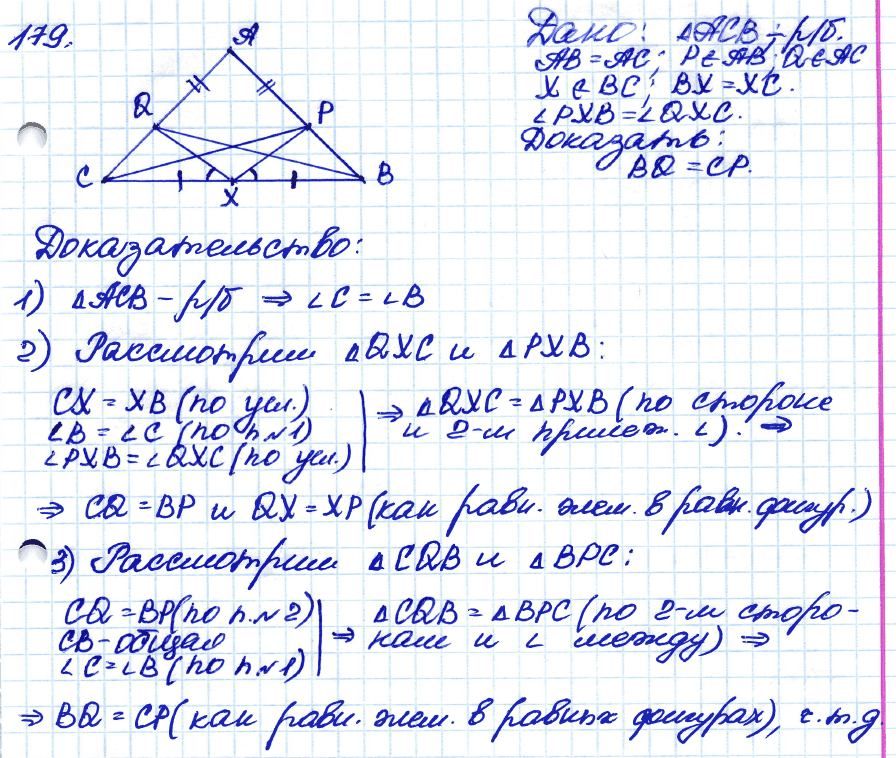 179.
A
Q
P
C
X
B
Дано: △ACB - р/б.
AB = AC; P ∈ AB; Q ∈ AC
X ∈ BC; BX = XC.
∠PXB = ∠QXC.
Доказать:
BQ = CP.
Доказательство:
1) △ACB - р/б ⇒ ∠C = ∠B
2) Рассмотрим △QXC и △PXB:
CX = XB (по усл.)
∠B = ∠C (по п.№1)
∠PXB = ∠QXC (по усл.)
⇒ △QXC = △PXB (по стороне
и 2-м прилеж. ∠). ⇒
⇒ CQ = BP и QX = XP (как равн. элем. в равн. фигур.)
3) Рассмотрим △CQB и △BPC:
CQ = BP (по п.№2)
CB - общая
∠C = ∠B (по п.№1)
⇒ △CQB = △BPC (по 2-м сторо-
нам и ∠ между) ⇒
⇒ BQ = CP (как равн. элем. в равных фигурах), ч.т.д.